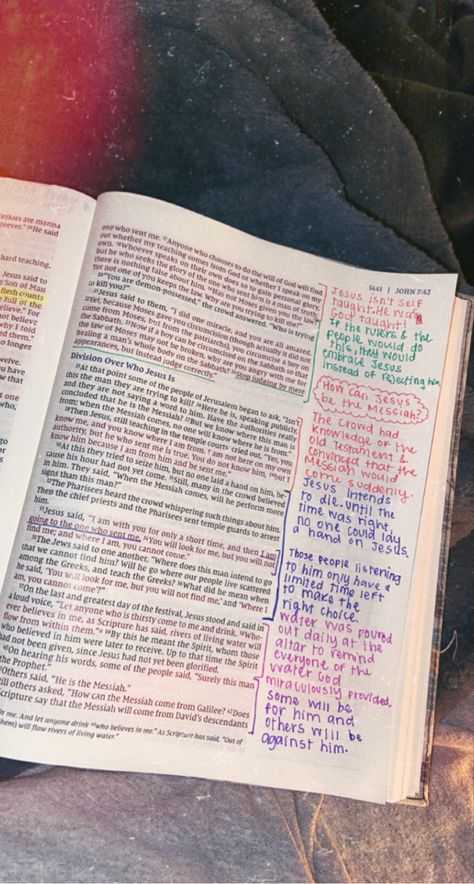 1441 | JOHN 7:42
estors ate manna
orever." ⁵⁹He said
hard teaching.
Jesus said to
e Son of Man
flesh counts
e full of the
believe." For
not believe
why I told
d them."
o longer
one who sent me. ¹⁷Anyone who chooses to do the will of God will find
out whether my teaching comes from God or whether I speak on my
own. ¹⁸Whoever speaks on their own does so to gain personal glory,
but he who seeks the glory of the one who sent him is a man of truth;
there is nothing false about him. ¹⁹Has not Moses given you the law?
Yet not one of you keeps the law. Why are you trying to kill me?"
²⁰"You are demon-possessed," the crowd answered. "Who is trying
to kill you?"
²¹Jesus said to them, "I did one miracle, and you are all amazed.
²²Yet, because Moses gave you circumcision (though actually it did not
come from Moses, but from the patriarchs), you circumcise a boy on
the Sabbath. ²³Now if a boy can be circumcised on the Sabbath so that
the law of Moses may not be broken, why are you angry with me for
healing a man's whole body on the Sabbath? ²⁴Stop judging by mere
appearances, but instead judge correctly."
Division Over Who Jesus Is
²⁵At that point some of the people of Jerusalem began to ask, "Isn't
this the man they are trying to kill? ²⁶Here he is, speaking publicly,
and they are not saying a word to him. Have the authorities really
concluded that he is the Messiah? ²⁷But we know where this man is
from; when the Messiah comes, no one will know where he is from."
²⁸Then Jesus, still teaching in the temple courts, cried out, "Yes, you
know me, and you know where I am from. I am not here on my own
authority, but he who sent me is true. You do not know him, ²⁹but I
know him because I am from him and he sent me."
³⁰At this they tried to seize him, but no one laid a hand on him, be-
cause his hour had not yet come. ³¹Still, many in the crowd believed
in him. They said, "When the Messiah comes, will he perform more
signs than this man?"
³²The Pharisees heard the crowd whispering such things about him.
Then the chief priests and the Pharisees sent temple guards to arrest
him.
³³Jesus said, "I am with you for only a short time, and then I am
going to the one who sent me. ³⁴You will look for me, but you will not
find me; and where I am, you cannot come."
³⁵The Jews said to one another, "Where does this man intend to go
that we cannot find him? Will he go where our people live scattered
among the Greeks, and teach the Greeks? ³⁶What did he mean when
he said, 'You will look for me, but you will not find me,' and 'Where I
am, you cannot come'?"
³⁷On the last and greatest day of the festival, Jesus stood and said in
a loud voice, "Let anyone who is thirsty come to me and drink. ³⁸Who-
ever believes in me, as Scripture has said, rivers of living water will
flow from within them." ³⁹By this he meant the Spirit, whom those
who believed in him were later to receive. Up to that time the Spirit
had not been given, since Jesus had not yet been glorified.
⁴⁰On hearing his words, some of the people said, "Surely this man
the Prophet."
Others said, "He is the Messiah."
ill others asked, "How can the Messiah come from Galilee? ⁴²Does
Scripture say that the Messiah will come from David's descendants
to me. And let anyone drink ³⁸who believes in me." As Scripture has said, "Out of
them) will flow rivers of living water."
Jesus isn't self
taught. He was
God taught!
If the rulers & the
people would do
this, they would
embrace Jesus
instead of rejecting him
How can Jesus
be the Messiah?
The crowd had
knowledge of the
Old Testament &
convinced that the
Messiah would
come suddenly.
Jesus intends
to die. until the
time was right,
no one could lay
a hand on Jesus.
Those people listening
to him only have a
limited time left
to make the
right choice.
water was poured
out daily at the
altar to remind
everyone of the
water God
miraculously provided.
some will be
for him and
others will be
against him.